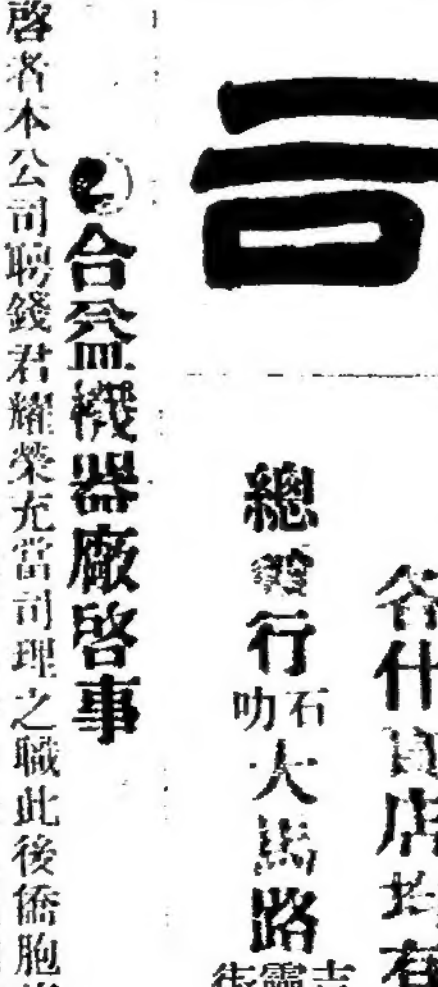 各什貨店均有
總發行石叻大馬路吉靈街
合益機器廠啓事
啓者本公司聘錢君耀榮充當司理之職此後僑胞